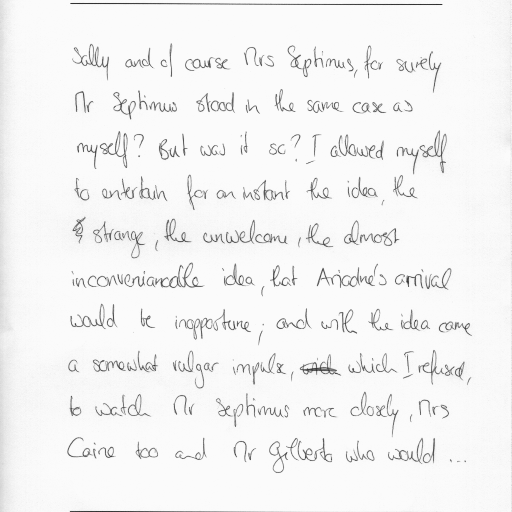 Sally and of course Mrs Septimus, for surely
Mr Septimus stood in the same case as
myself? But was it so? I allowed myself
to entertain for an instant the idea, the
strange, the unwelcome, the almost
idea, that Ariadne's arrival
would be inopportune; and with the idea came
a somewhat vulgar impulse, which I refused,
to watch Mr Septimus more closely, Mrs
Caine too and Mr Gilberto who would ...